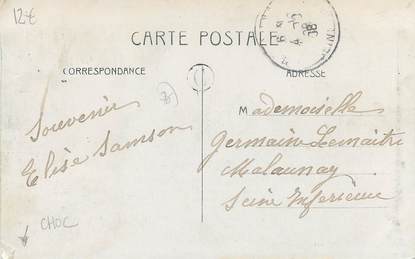 12€
CARTE POSTALE
CORRESPONDANCE
ADRESSE
Souvenir
Elise Samson
Mademoiselle
Germaine Lemaitre
Malaunay
Seine Inferieure
CHOC